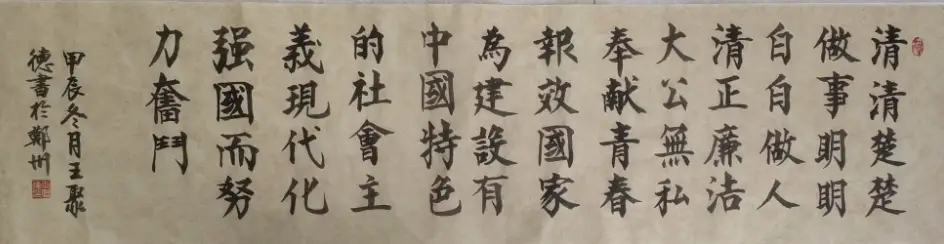 清清楚楚
做事明明
白白做人
清正廉洁
大公無私
奉献青春
報效國家
為建設有
中國特色
的社會主
義現代化
强國而努
力奮鬥
甲辰冬月王聚
德書於鄭州